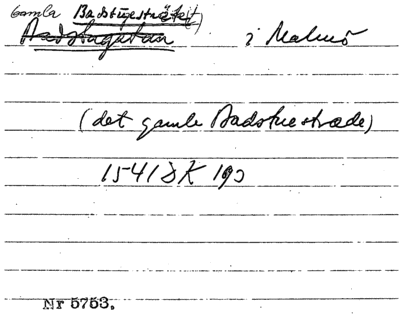 Gamla Badstugesträtet) i Malmö
Badstugatan
(det gamle Badstuestræde)
1541 DK 190
Nr 5753.